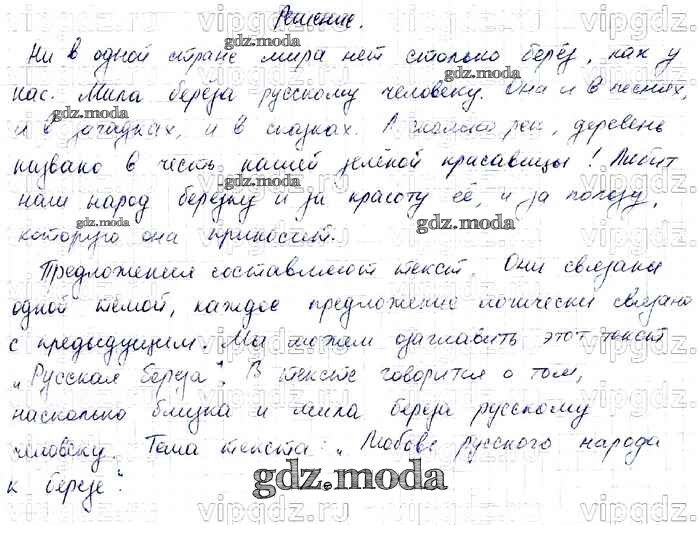 Решение.
Ни в одной стране мира нет столько берёз, как у
нас. Мила берёза русскому человеку. Она и в песнях,
и в загадках, и в сказках. А сколько рек, деревень
названо в честь нашей зелёной красавицы! Любит
наш народ берёзку и за красоту её, и за пользу,
которую она приносит.
Предложения составляют текст. Они связаны
одной темой, каждое предложение логически связано
с предыдущем. Мы можем озаглавить этот текст
„Русская береза". В тексте говорится о том,
насколько близка и мила береза русскому
человеку. Тема текста: „Любовь русского народа
к березе".
gdz.moda
vipgdz